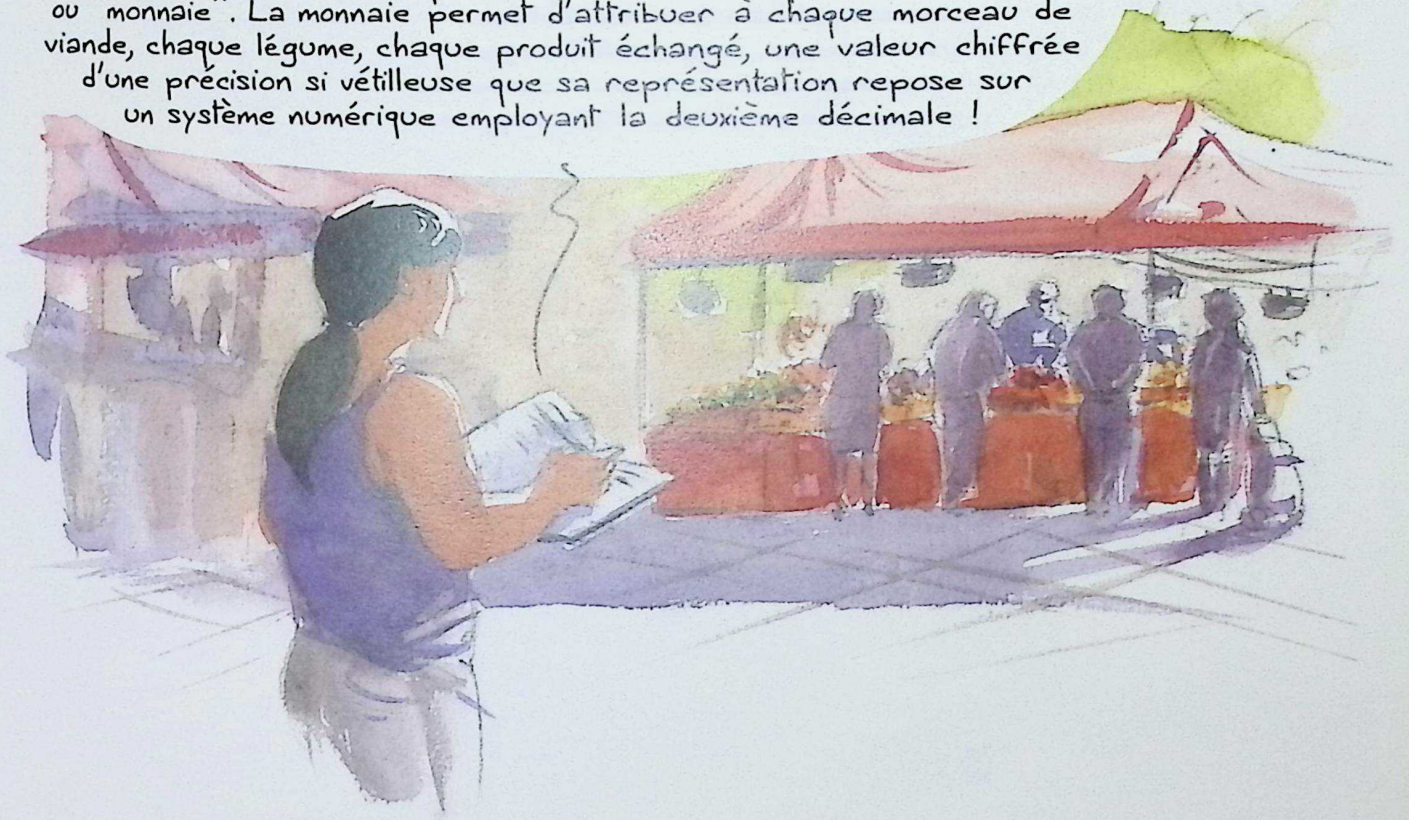 ou "monnaie". La monnaie permet d'attribuer à chaque morceau de
viande, chaque légume, chaque produit échangé, une valeur chiffrée
d'une précision si vétilleuse que sa représentation repose sur
un système numérique employant la deuxième décimale !